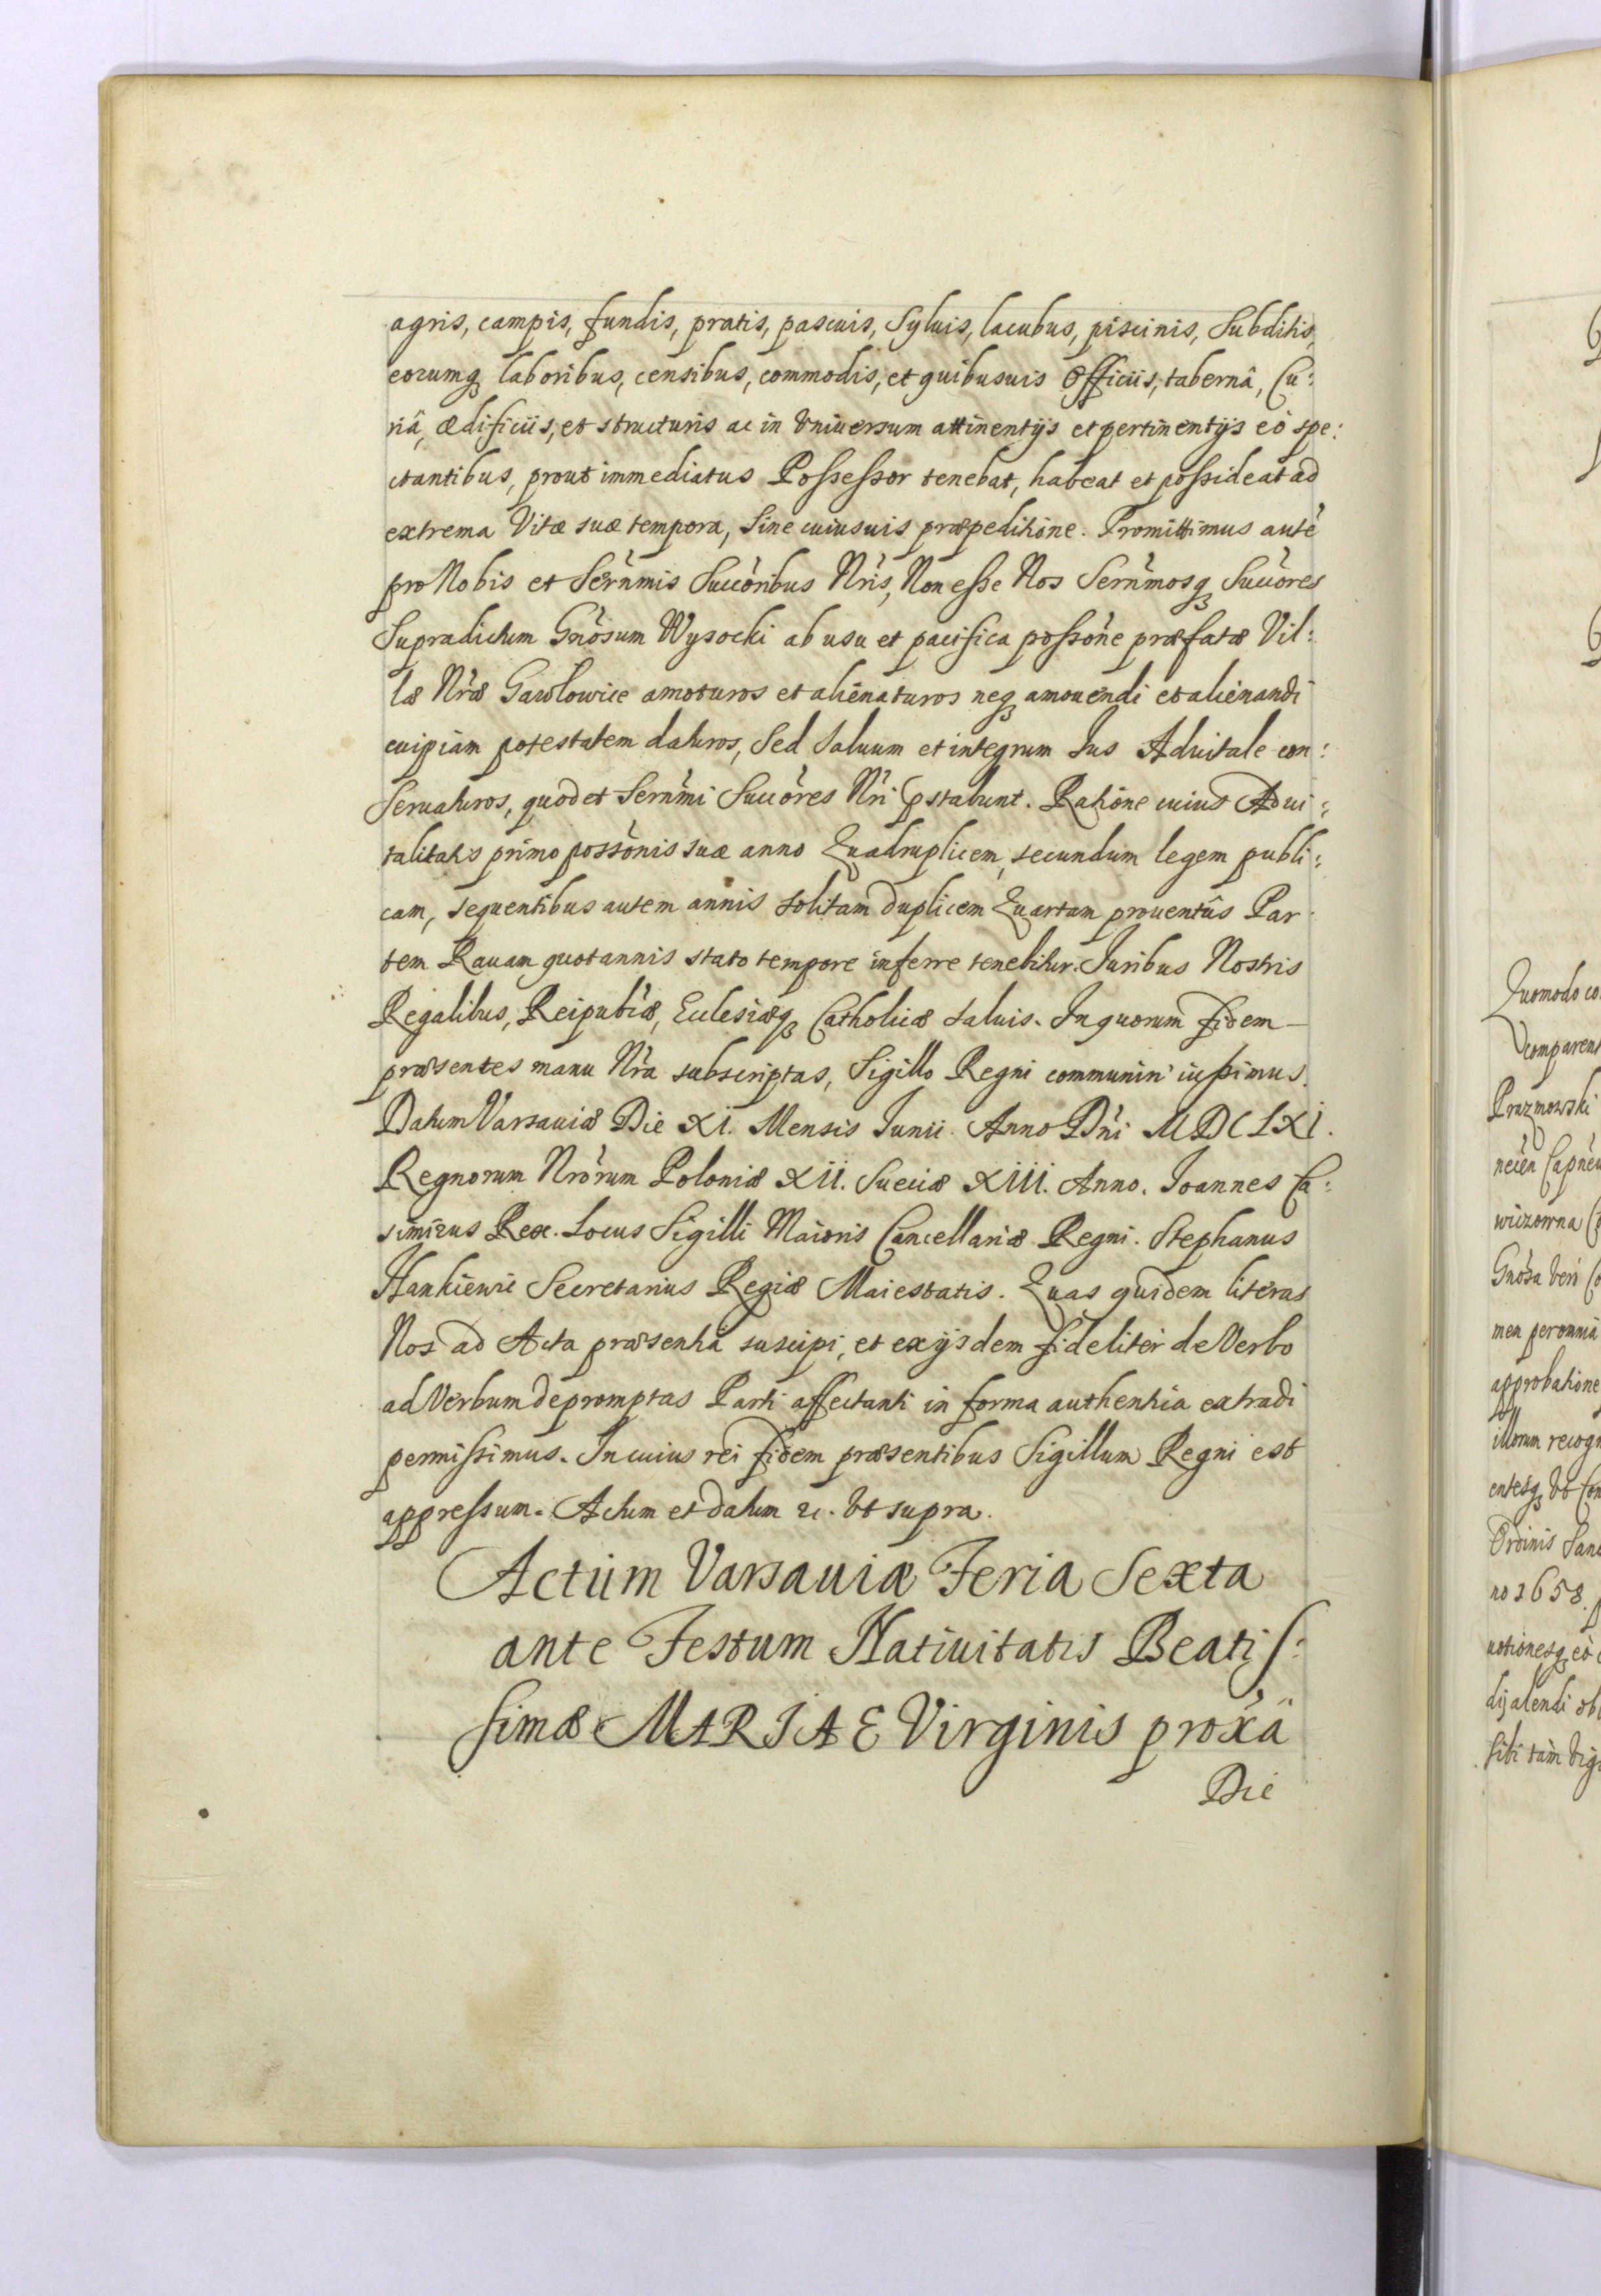 agris, campis, fundis, pratis, pascuis, Syluis, lacubus, piscinis, Subditis,
eorumq₃ laboribus, censibus, commodis, et quibusuis Officiis, tabernâ, Cu:
riâ, ædificiis, et structuris ac in Vniuersum attinentijs et pertinentijs eò spe:
ctantibus, prout immediatus Possessor tenebat, habeat et possideat ad
extrema Vitæ suæ tempora, Sine cuiusuis præpeditione. Promittimus autē
pro Nobis et Sernmis Succoribus Nris, Non esse Nos Sernmosq₃ Succores
Supradictum Gnosum Wysocki ab usu et pacifica possone præfatæ Vil:
læ Nræ Gawlowice amoturos et alienaturos neq₃ amouendi et alienandi
cuipiam potestatem daturos, Sed Saluum et integrum Ius Aduitale con:
Seruaturos, quod et Sernmi Succores Nri pstabunt. Ratione cuius Adui:
talitatis primo possonis suæ anno Quadruplicem, secundum legem publi:
cam, sequentibus autem annis solitam duplicem Quartam prouentûs Par
tem Rauam quotannis stato tempore inferre tenebitur. Iuribus Nostris
Regalibus, Reipublæ, Ecclesiæq₃ Catholicæ saluis. In quorum fidem
præsentes manu Nra subscriptas, Sigillo Regni communiri iussimus.
Datum Varsauiæ Die XI. Mensis Iunii. Anno Dni MDCLXI.
Regnorum Nrorum Poloniæ XII. Sueciæ XIII. Anno. Ioannes Ca:
simirus Rex. Locus Sigilli Maioris Cancellariæ Regni. Stephanus
Hankiewic Secretarius Regiæ Maiestatis. Quas quidem literas
Nos ad Acta præsentia suscipi, et ex ijsdem fideliter de Verbo
ad Verbum depromptas Parti affectanti in forma authentica extradi
permissimus. In cuius rei fidem præsentibus Sigillum Regni est
appressum. Actum et datum &c. Vt supra.
Actum Varsauiæ Feria Sexta
ante Festum Natiuitatis Beatis:
simæ MARIAE Virginis proxa
Die
Quomodo co
comparen
Prazmowski
necen Capneu
wiczowna
Gnosa Veri
men peromnia
approbatione
illorum recogn
entesq₃ Vt Con
Ordinis Sanc
no 1658.
uotionesq₃ eò
dij alendi ob
sibi tam Vig